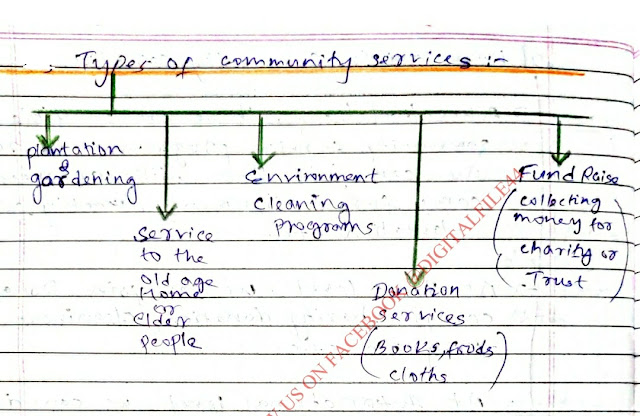 Types of community services :-
plantation
&
gardening
service
to the
old age
Home
or
elder
people
Environment
cleaning
programs
Donation
services
(Books, foods
cloths)
Fund Raise
(collecting
money for
charity or
Trust)
US ON FACEBOOK @DIGITALFILE44